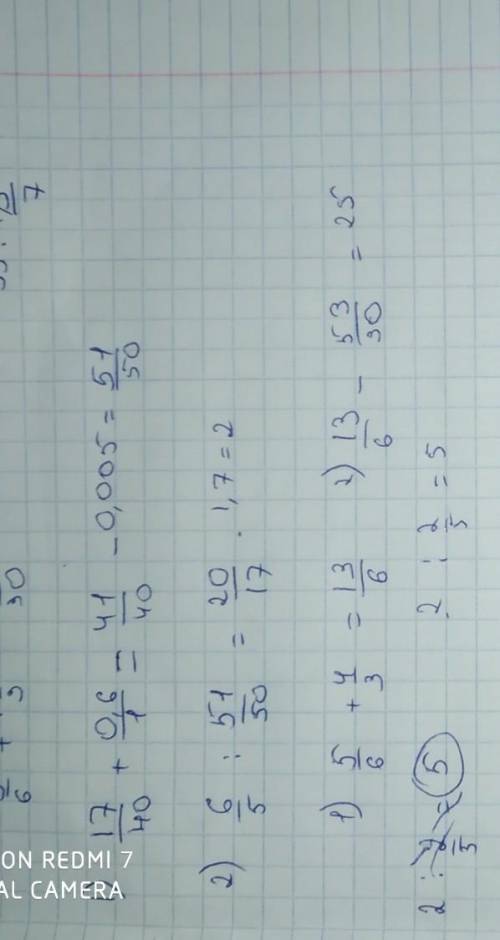 1) 17/40 + 0,6/1 = 41/40 - 0,005 = 51/50
2) 6/5 : 51/50 = 20/17 · 1,7 = 2
1) 5/6 + 4/3 = 13/6 2) 13/6 - 53/30 = 25
2 : 2/5 = 5 2 : 2/5 = 5
ON REDMI 7
AL CAMERA